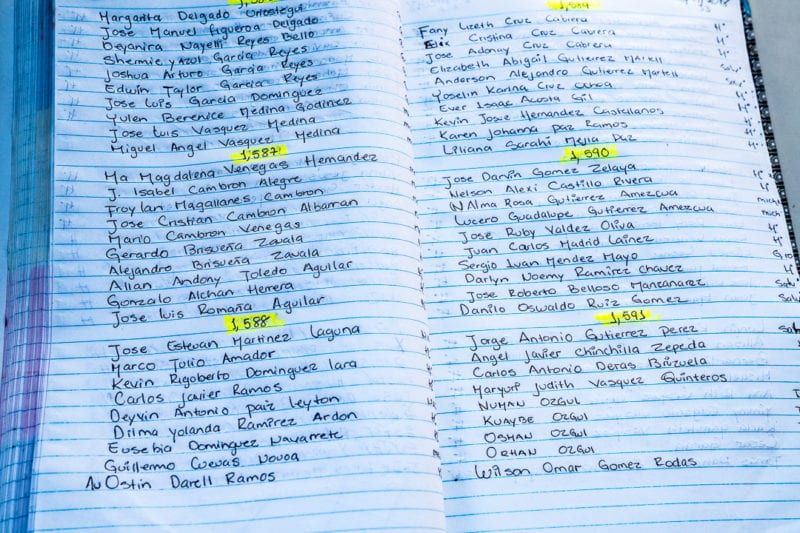 Margarita Delgado Uriostegui
Jose Manuel Figueroa Delgado
Deyanira Nayelli Reyes Bello
Shermie y Azul Garcia Reyes
Joshua Arturo Garcia Reyes
Edwin Taylor Garcia Reyes
Jose Luis Garcia Dominguez
Yulen Berenice Medina Godinez
Jose Luis Vasquez Medina
Miguel Angel Vasquez Medina
1,587
Ma Magdalena Venegas Hernandez
J. Isabel Cambron Alegre
Froylan Magallanes Cambron
Jose Cristian Cambron Albarran
Mario Cambron Venegas
Gerardo Brisueña Zavala
Alejandro Brisueña Zavala
Allan Andony Toledo Aguilar
Gonzalo Alchan Herrera
Jose Luis Romaña Aguilar
1,588
Jose Estevan Martinez Laguna
Marco Tulio Amador
Kevin Rigoberto Dominguez Lara
Carlos Javier Ramos
Deyvin Antonio paiz Leyton
Dilma Yolanda Ramirez Ardon
Eusebia Dominguez Navarrete
Guillermo Cuevas Novoa
Ostin Darell Ramos
1,589
Fany Lizeth Cruz Cabrera
Cristina Cruz Cabrera
Jose Adonay Cruz Cabrera
Elizabeth Abigail Gutierrez Martell
Anderson Alejandro Gutierrez Martell
Yoselin Karina Cruz
Ever Isaac Acosta Gil
Kevin Josue Hernandez Castellanos
Karen Johanna Paz Ramos
Liliana Sarahi Mejia Paz
1,590
Jose Darvin Gomez Zelaya
Nelson Alexi Castillo Rivera
Alma Rosa Gutierrez Amezcua
Lucero Guadalupe Gutierrez Amezcua
Jose Ruby Valdez Oliva
Juan Carlos Madrid Lainez
Sergio Ivan Mendez Mayo
Darlyn Noemy Ramirez chavez
Jose Roberto Belloso Manzanarez
Danilo Oswaldo Ruiz Gomez
1,591
Jorge Antonio Gutierrez Perez
Angel Javier Chinchilla Zepeda
Carlos Antonio Deras Brizuela
Maryuri Judith Vasquez Quinteros
NUMAN OZGUL
KUAYBE OZGUL
OSMAN OZGUL
ORHAN OZGUL
Wilson Omar Gomez Rodas